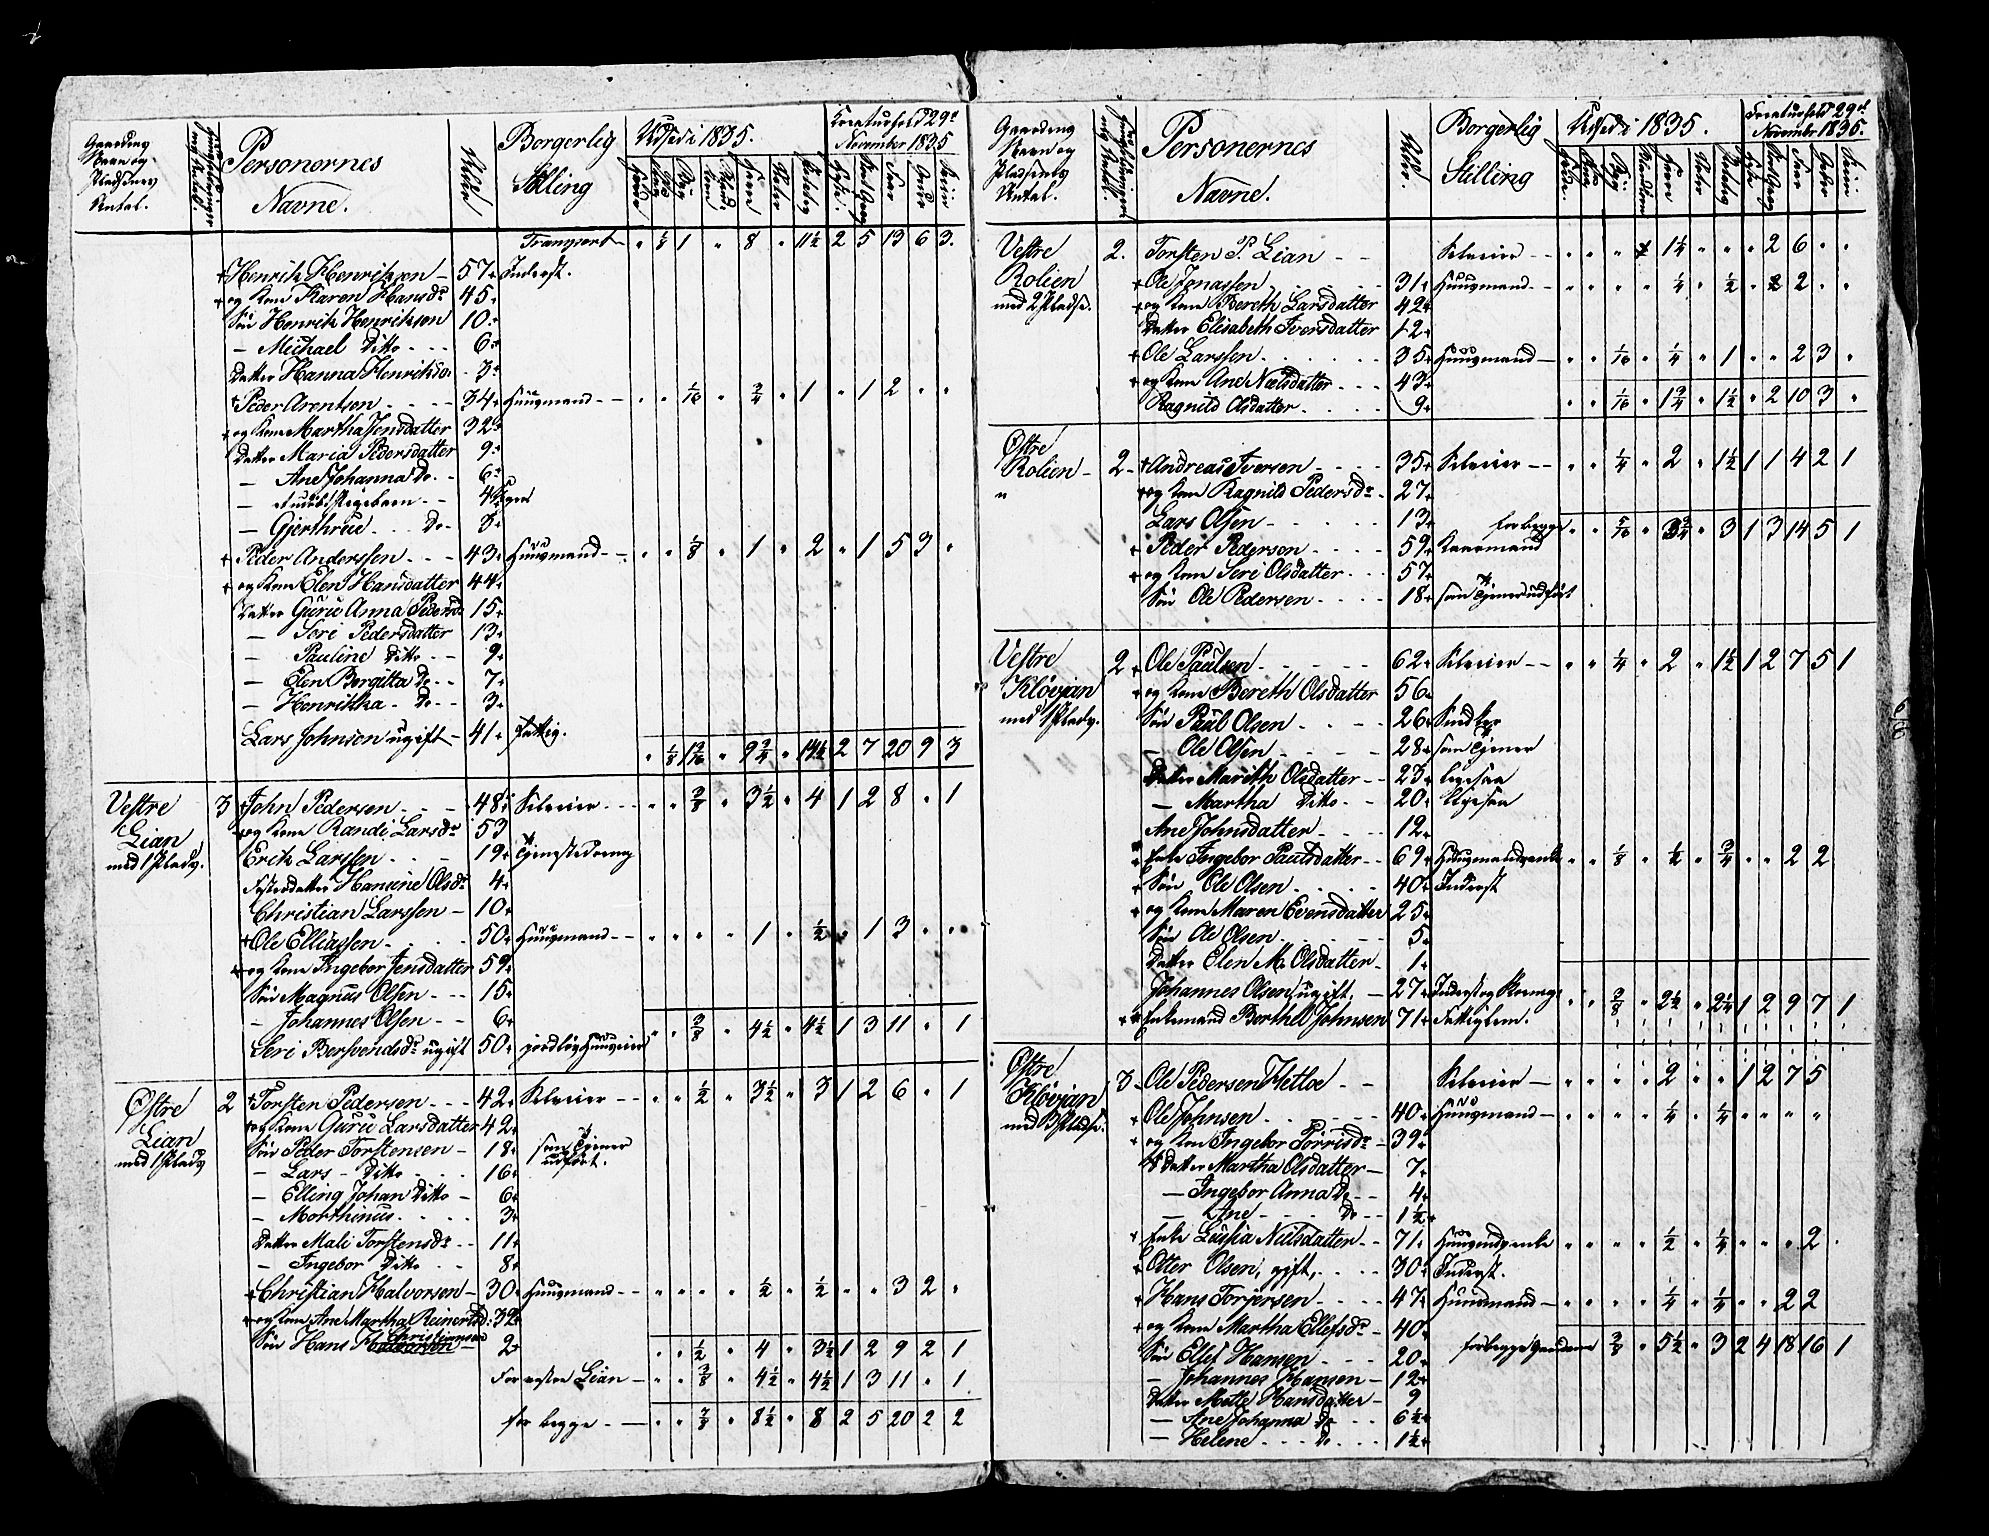 Gaardens Navn og Pladsenes Antal.
Personernes Navne.
Alder
Borgerlig Stilling
Udsed i 1835.
Kreaturhold 29de November 1835
Transport " 1/8 1 " 8 " 11 1/2 2 5 13 6 3.
+ Henrik Henrikson 57 Inderst.
+ og Kone Karen Hansdr 45
Søn Henrik Henrikson 10
— Michael Ditto 6
Datter Hanna Henriksd. 3
+ Peder Arentsen 34 Huusmand " " 1/16 " 3/4 " 1 " 1 2 " "
+ og Kone Martha Jensdatter 32
Datter Maria Pedersdatter 9
— Ane Johanna Do 6
— et udøbt Pigebarn 4
— Gjerthrue Do 3
+ Peder Anderssen 43 Huusmand " " 1/8 " 1 " 2 " 1 5 3 "
+ og Kone Elen Hansdatter 44
Datter Guru Anna Pedersd 15
— Seri Pedersdatter 13
— Pauline Ditto 9
— Elen Bergitta Do 7
— Henrikka Do 3
Lars Johnsen ugift 41 Fattig.
" 1/8 1 3/16 " 9 3/4 " 14 1/2 2 7 20 9 3
Vestre Lian med 1 Plads. 3 + John Pedersen 48 Selveier " " 3/8 " 3 1/2 " 4 1 2 8 " 1
+ og Kone Randi Larsdr 53
Erik Larssen 19 Tjenestedreng
Fosterdatter Hansine Olsdr 4
Christian Larssen 10
+ Ole Elliassen 50 Huusmand " " " " 1 " 1/2 " 1 3 " "
+ og Kone Ingebor Jensdatter 59
Søn Magnus Olsen 15
— Johannes Olsen 6
" " 3/8 " 4 1/2 " 4 1/2 1 3 11 " 1
Seri Bersvendsdr ugift 50 jordløs Huuseier
Østre Lian med 1 Plads 2 + Torsten Pedersen 42 Selveier " " 1/2 " 3 1/2 " 3 1 2 6 " 1
+ og Kone Guru Larsdatter 42
Søn Peder Torstensen 18 som Tjener udført.
— Lars Ditto 16
— Elling Johan Ditto 6
— Morthinus 3
Datter Mali Torstensdr 11
— Ingebor Ditto 8
+ Christian Halvorsen 30 Huusmand " " " " 1/2 " 1/2 " " 3 2 "
+ og Kone Ane Martha Reinertsd. 32
Søn Hans Christiansen 2
" " 1/2 " 4 " 3 1/2 1 2 9 2 1
For vestre Lian " " 3/8 " 4 1/2 " 4 1/2 1 3 11 " 1
for begge " " 7/8 " 8 1/2 " 8 2 5 20 2 2
Gaardens Navn og Pladsenes Antal.
Personernes Navne.
Alder.
Borgerlig Stilling
Udsed i 1835.
Kreaturhold 29de November 1835.
Vestre Rolien med 2 Pladse. 2. Torsten P. Lian Selveier " " " " 1 1/4 " " " 2 6 " "
+ Ole Jonassen 31 Huusmand " " " " 1/4 " 1/2 " 2 " "
+ og Kone Bereth Larsdatter 42
Datter Elisabeth Iversdatter 12
+ Ole Larssen 35 Huusmand " " 1/16 " 1/4 " 1 " " 2 3 "
+ og Kone Ane Nielsdatter 43
Ragnild Olsdatter 9
" " 1/16 " 1 3/4 " 1 1/2 " 2 10 3 "
Østre Rolien 2 + Andreas Iversen 35 Selveier " " 1/4 " 2 " 1 1/2 1 1 4 2 1
+ og Kone Ragnild Pedersdr 27
Lars Olsen 13
for begge " " 5/16 " 3 3/4 " 3 1 3 14 5 1
+ Peder Pedersen 59 Kaarmand
+ og Kone Seri Olsdatter 57
Søn Ole Pedersen 18 som Tjener udført
Vestre Kløvjan med 1 Plads. 2 + Ole Paulsen 62 Selveier " " 1/4 " 2 " 1 1/2 1 2 7 5 1
+ og Kone Bereth Olsdatter 56
Søn Paul Olsen 26 Snedker
— Ole Olsen 28 som Tjener
Datter Marith Olsdatter 23 ligesaa
— Martha Ditto 20 ligesaa
Ane Johnsdatter 12
+ Enke Ingebor Paulsdatter 69 Huusmandsenke " " 1/8 " 1/2 " 3/4 " " 2 2
+ Søn Ole Olsen 40 Inderst
+ og Kone Maren Evensdatter 25
Søn Ole Olsen 5
Datter Elen M. Olsdatter 1
Johannes Olsen, ugift, 27 Inderst og
" " 3/8 " 2 1/2 " 2 1/4 1 2 9 7 1
+ Enkemand Berthel Johnsen 71 Fattiglem.
Østre Kløvjan med 3 Pladse. 3 Ole Pedersen Hetloe Selveier " " " " 2 " " 1 2 7 5
+ Ole Johnsen 40 Huusmand " " " " 1/4 " 1/4 " " " "
+ og Kone Ingebor Tørrisdr 39
Datter Martha Olsdatter 7
— Ingebor Anna Do 4
— Ane Do 1 1/2
+ Enke Lusia Nielsdatter 71 Huusmdsenke " " " " 1/2 " 1/4 " " " 2 "
+ Peter Olsen, gift, 30 Inderst.
+ Hans Torjersen 47 Huusmand " " " " 1/4 " 1/4 " " 2 2
+ og Kone Martha Ellefsdr 40
for begge Gaardene 3/8 " 5 1/2 " 3 2 4 18 16 1
Søn Ellef Hansen 20
— Johannes Hansen 12
Datter Mette Hansdatter 9
— Ane Johanna Do 6 1/2
— Helene Do 1 1/2